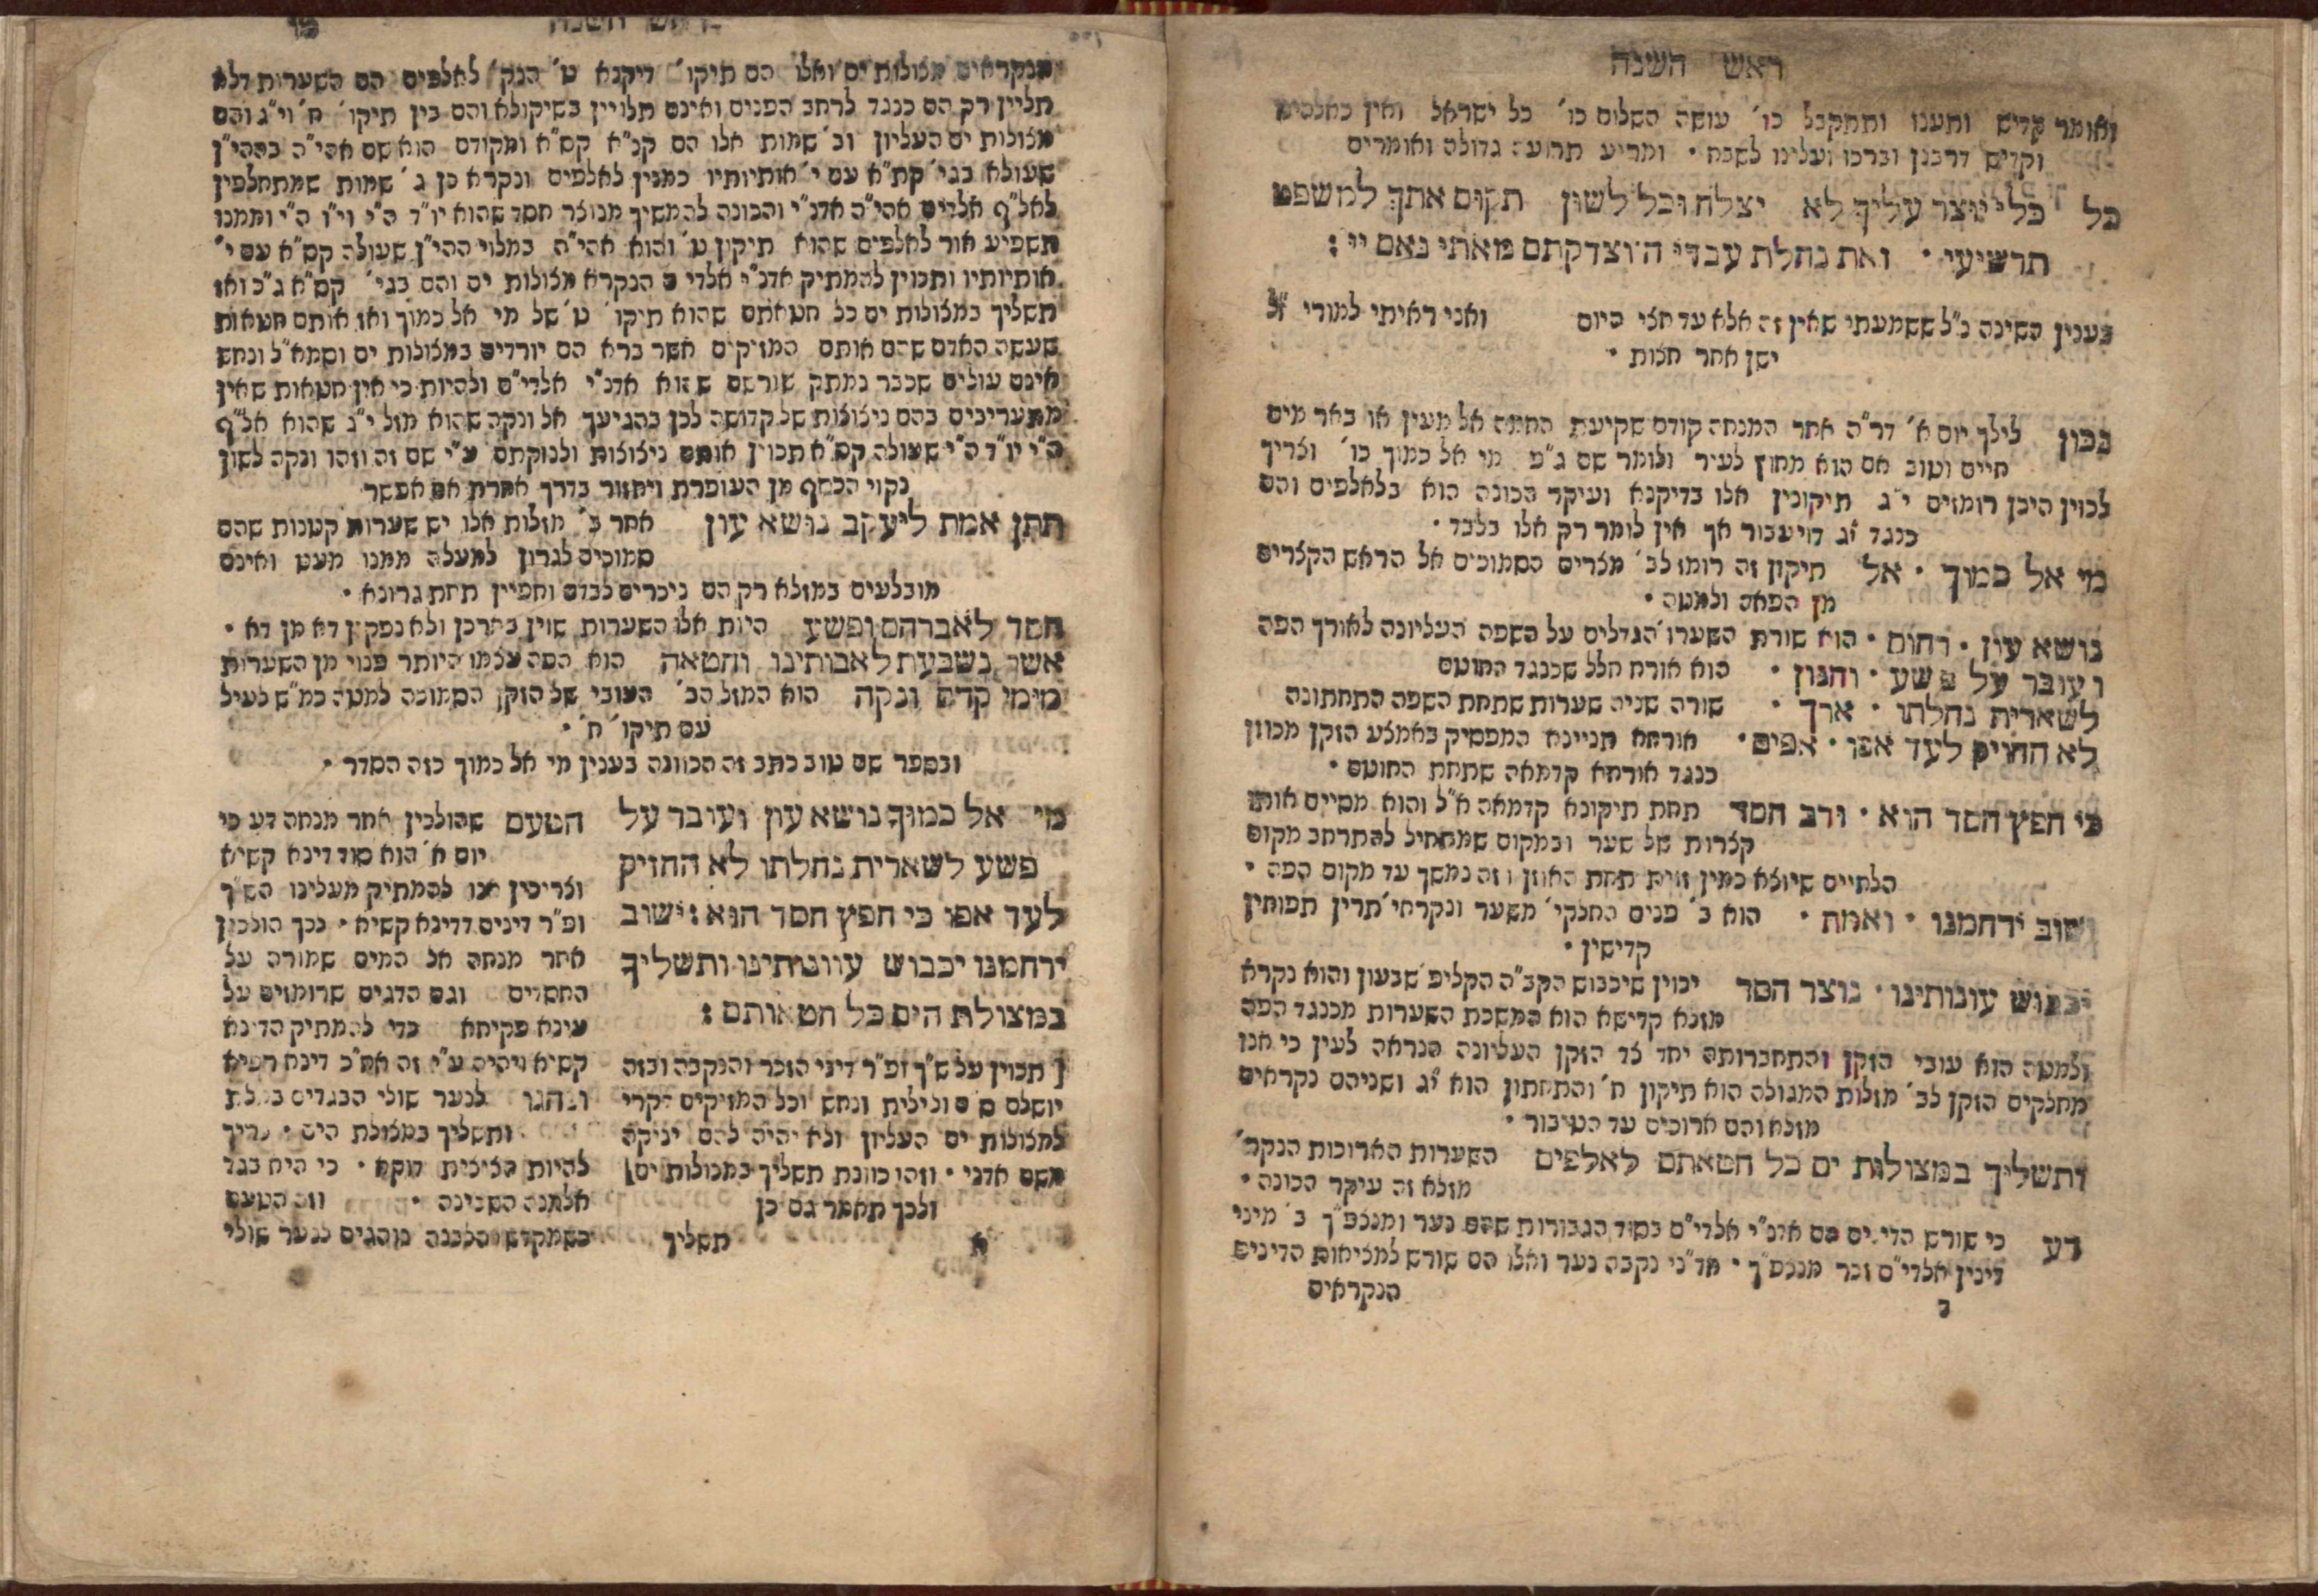 ראש השנה
ואומר קדיש ותענו ותתקבל כו׳ עושה השלום כו׳ כל ישראל ואין כאלהינו
וקדיש דרבנן וברכו ועלינו לשבח · ומריע תרועה גדולה ואומרים
כל כלי יוצר עליך לא יצלח וכל לשון תקום אתך למשפט
תרשיעי · זאת נחלת עבדי ה׳ וצדקתם מאתי נאם יי׳ :
בענין השינה נ״ל ששמעתי שאין זה אלא עד חצי היום ואני ראיתי למורי ז״ל
ישן אחר חצות ·
נכון לילך יום א׳ דר״ה אחר המנחה קודם שקיעת החמה אל מעין או באר מים
חיים וטוב אם הוא מחוץ לעיר ולומר שם ג״פ מי אל כמוך כו׳ וצריך
לכוין היכן רומזים י״ג תיקונין אלו בדיקנא ועיקר הכונה הוא בלאלפים והם
כנגד י״ג דויעבור אך אין לומר רק אלו בלבד ·
מי אל כמוך · אל תיקון זה רומז לב׳ מצרים הסמוכים אל הראש הקצרים
מן הפאה ולמטה ·
נושא עון · רחום · הוא שורת השערו׳ הגדלים על השפה העליונה לאורך הפה
ועובר על פשע · וחנון · הוא אורח חלל שכנגד החוטם
לשארית נחלתו · ארך · שורה שניה שערות שתחת השפה התחתונה
לא החזיק לעד אפו · אפים · אורחא תניינא המפסיק באמצע הזקן מכוון
כנגד אורחא קדמאה שתחת החוטם ·
כי חפץ חסד הוא · ורב חסד תחת תיקונא קדמאה א״ל והוא מסיים אותן
קצרות של שער ובמקום שמתחיל להתרחב מקום
הלחיים שיוצא כמין זוית תחת האוזן וזה נמשך עד מקום הפה ·
ישוב ירחמנו · ואמת · הוא ב׳ פנים החלקי׳ משער ונקרחי׳ תרין תפוחין
קדישין ·
יכבוש עונותינו · נוצר חסד יכוין שיכבוש הקב״ה הקליפ׳ שבעון והוא נקרא
מזלא קדישא הוא המשכת השערות מכנגד הפה
ולמטה הוא עובי הזקן והתחברותה יחד צד הזקן העליונה הנראה לעין כי אנו
מחלקים הזקן לב׳ מזלות המגולה הוא תיקון ח׳ והתחתון הוא י״ג ושניהם נקראים
מזלא והם ארוכים עד הטיבור ·
ותשליך במצולות ים כל חטאתם לאלפים השערות הארוכות הנקר׳
מזלא זה עיקר הכונה ·
דע כי שורש הדינים הם אדנ״י אלדי״ם בסוד הגבורות שהם נער ומנצפ״ך ב׳ מיני
דינין אלדי״ם זכר מנצפ״ך · אד״ני נקבה נער ואלו הם שורש למציאות הדינים
ב הנקראים
ראש השנה
הנקראים מצולות ים ואלו הם תיקו׳ דיקנא ט׳ הנק׳ לאלפים הם השערות דלא
תליין רק הם כנגד לרחב הפנים ואינם תלויין בשיקולא והם בין תיקו׳ ח׳ וי״ג והם
מצולות ים העליון וב׳ שמות אלו הם קנ״א קס״א ומקודם הוא שם אהי״ה בההי״ן
שעולא בגי׳ קת״א עם י׳ אותיותיו כמנין לאלפים ונקרא כן ג׳ שמות שמתחלפין
לאל״ף אלדים אהי״ה אדנ״י והכונה להמשיך מנוצר חסד שהוא יו״ד ה״י וי״ו ה״י וממנו
תשפיע אור לאלפים שהוא תיקון ט׳ והוא אהי״ה במלוי ההי״ן שעולה קס״א עם י׳
אותיותיו ותכוין להמתיק אדנ״י אלדים הנקרא מצולות ים והם בגי׳ קס״א ג״כ ואז
תשליך במצולות ים כל חטאתם שהוא תיקו׳ ט׳ של מי אל כמוך ואז אותם חטאות
שעשה האדם שהם אותם המזיקים אשר ברא הם יורדים במצולות ים וסמא״ל ונחש
אינם עולים שכבר נמתק שורשם שהוא אדנ״י אלדי״ם ולהיות כי אין חטאות שאין
מתעריבים בהם ניצוצות של קדושה לכן בהגיעך אל ונקה שהוא מזל י״ג שהוא אל״ף
ה״י יו״ד ה״י שעולה קס״א תכוין אותם ניצוצות ולנקותם ע״י שם זה וזהו ונקה לשון
נקוי הכסף מן העופרת ויחזור בדרך אחרת אם אפשר
תתן אמת ליעקב נושא עון אחר ב׳ מזלות אלו יש שערות קטנות שהם
סמוכים לגרון למעלה ממנו מעט ואינם
מובלעים במזלא רק הם ניכרים לבדם וחפיין תחת גרונא ·
חסד לאברהם ופשע היות אלו השערות שוין כחדכן ולא נפקין דא מן דא ·
אשר נשבעת לאבותינו וחטאה הוא הפה עצמו היותר פנוי מן השערות
מימי קדם ונקה הוא המזל הב׳ העובי של הזקן הסמוכה למטה כמ״ש לעיל
עם תיקו׳ ח׳ ·
ובספר שם טוב כתב זה הכוונה בענין מי אל כמוך כזה הסדר ·
מי אל כמוך נושא עון ועובר על
פשע לשארית נחלתו לא החזיק
לעד אפו כי חפץ חסד הוא : ישוב
ירחמנו יכבוש עוונותינו ותשליך
במצולת הים כל חטאותם :
[ תכוין על ש״ך ופ״ר דיני הזכר והנקבה ובזה
יושלם ס ם ולילית ונחש וכל המזיקים הקרי
למצולות ים העליון ולא יהיה להם יניקה
משם אדני · וזהו כוונת תשליך במצולות ים]
ולכך תאמר גם כן
א תשליך
הטעם שהולכין אחר מנחה דע כי
יום א׳ הוא סוד דינא קשיא
וצריכין אנו להמתיק מעלינו הש״ך
ופ״ר דינים דדינא קשיא · לכך הולכין
אחר מנחה אל המים שמורה על
החסדים וגם הדגים שרומזים על
עינא פקיחא כדי להמתיק הדינא
קשיא ויהיה ע״י זה אח״כ דינא רפיא
ונהגו לנער שולי הבגדים
ותשליך במצולת הים · צריך
להיות הציצית דוקא · כי היא בגד
אלמנה השכינה · וזה הטעם
כשמקדש הלבנה נוהגים לנער שולי